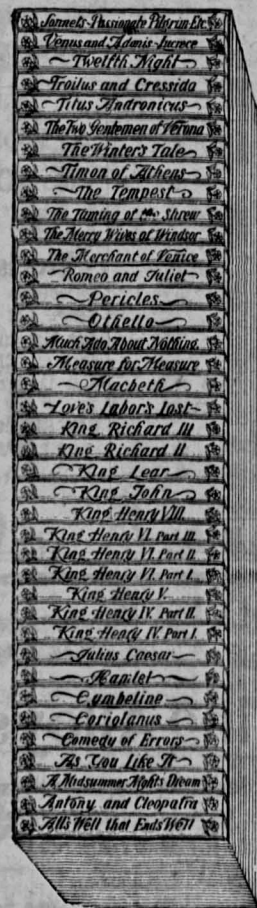 Sonnets-Passionate Pilgrim Etc.
Venus and Adonis-Lucrece
Twelfth Night
Troilus and Cressida
Titus Andronicus
The Two Gentlemen of Verona
The Winter's Tale
Timon of Athens
The Tempest
The Taming of the Shrew
The Merry Wives of Windsor
The Merchant of Venice
Romeo and Juliet
Pericles
Othello
Much Ado About Nothing
Measure for Measure
Macbeth
Love's Labor's Lost
King Richard III
King Richard II
King Lear
King John
King Henry VIII.
King Henry VI. Part III.
King Henry VI. Part II.
King Henry VI. Part I.
King Henry V.
King Henry IV. Part II.
King Henry IV. Part I.
Julius Caesar
Hamlet
Cymbeline
Coriolanus
Comedy of Errors
As You Like It
A Midsummer Nights Dream
Antony and Cleopatra
All's Well that Ends Well